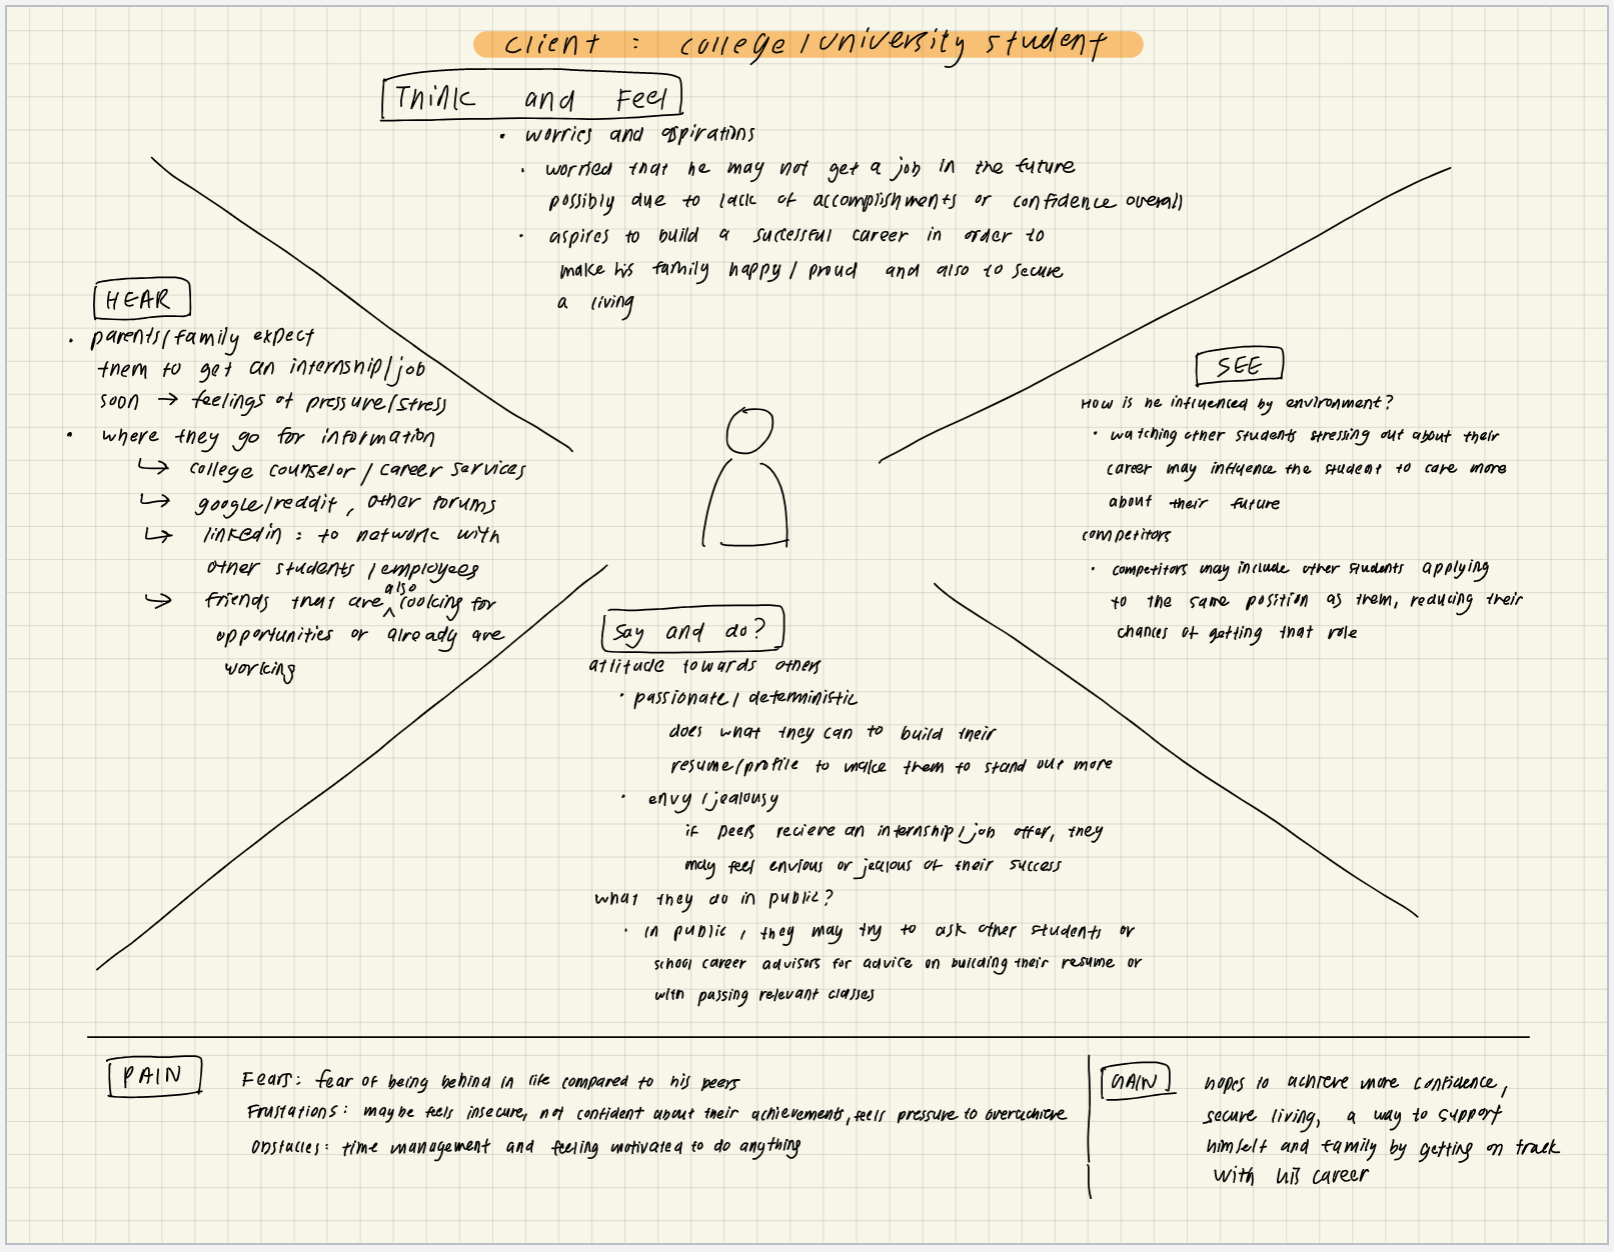 client : college/university student
Think and Feel
• worries and aspirations
• worried that he may not get a job in the future
possibly due to lack of accomplishments or confidence overall
• aspires to build a successful career in order to
make his family happy/proud and also to secure
a living
HEAR
• parents/family expect
them to get an internship/job
soon → feelings of pressure/stress
• where they go for information
↳ college counselor/career services
↳ google/reddit, other forums
↳ linkedin : to network with
other students/employees
↳ friends that are also looking for
opportunities or already are
working
SEE
How is he influenced by environment?
• watching other students stressing out about their
career may influence the student to care more
about their future
competitors
• competitors may include other students applying
to the same position as them, reducing their
chances of getting that role
Say and do?
attitude towards others
• passionate/deterministic
does what they can to build their
resume/profile to make them to stand out more
• envy/jealousy
if peers recieve an internship/job offer, they
may feel envious or jealous of their success
what they do in public?
• in public, they may try to ask other students or
school career advisors for advice on building their resume or
with passing relevant classes
PAIN
Fears: fear of being behind in life compared to his peers
Frustations: maybe feels insecure, not confident about their achievements, feels pressure to overachieve
Obstacles: time management and feeling motivated to do anything
GAIN
hopes to achieve more confidence,
secure living, a way to support
himself and family by getting on track
with his career